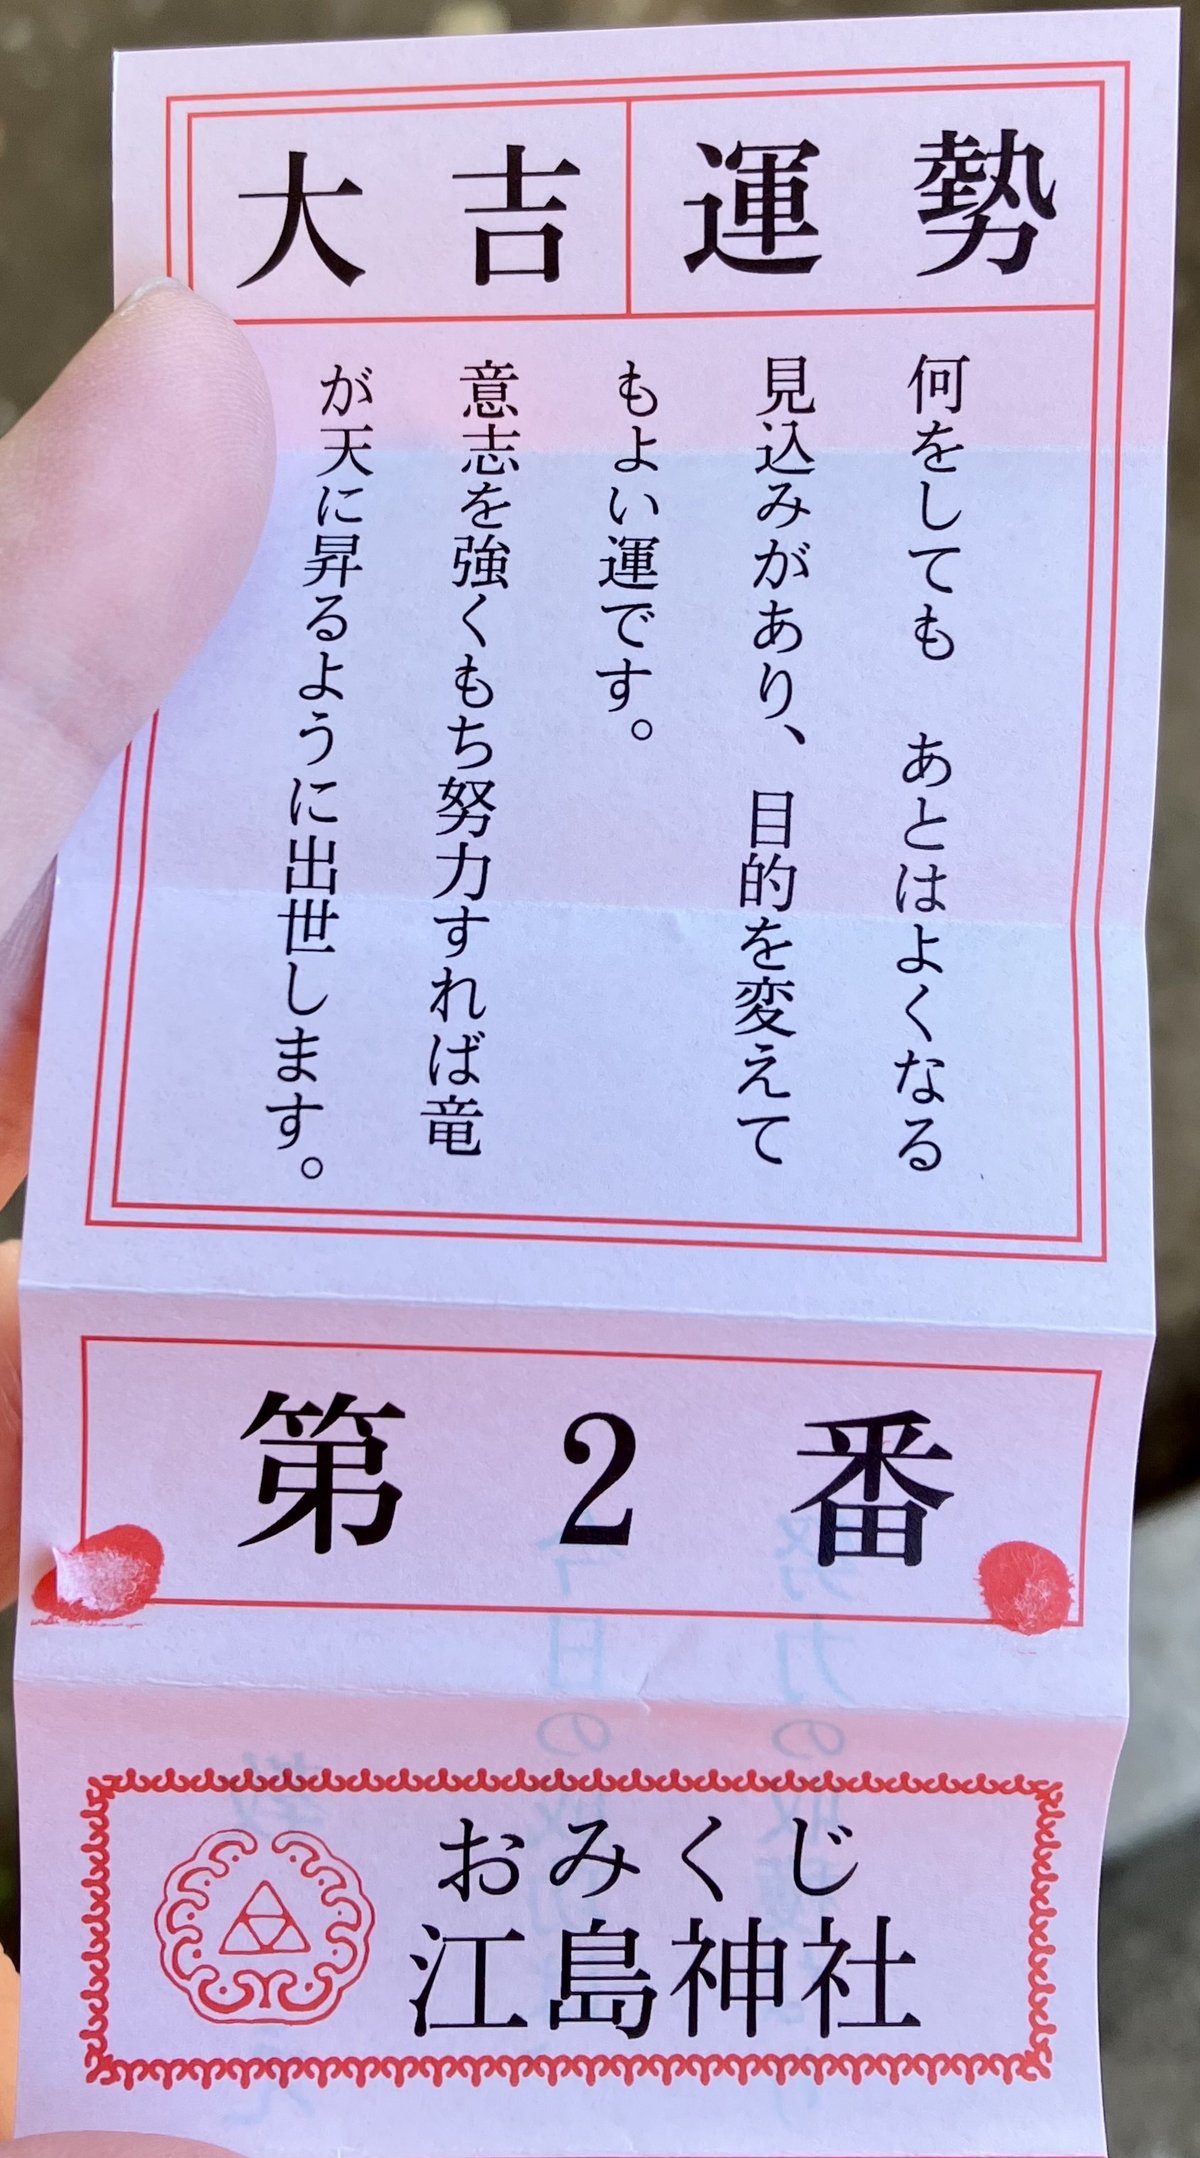 大吉 運勢
何をしても　あとはよくなる
見込みがあり、目的を変えて
もよい運です。
意志を強くもち努力すれば竜
が天に昇るように出世します。
第2番
おみくじ
江島神社